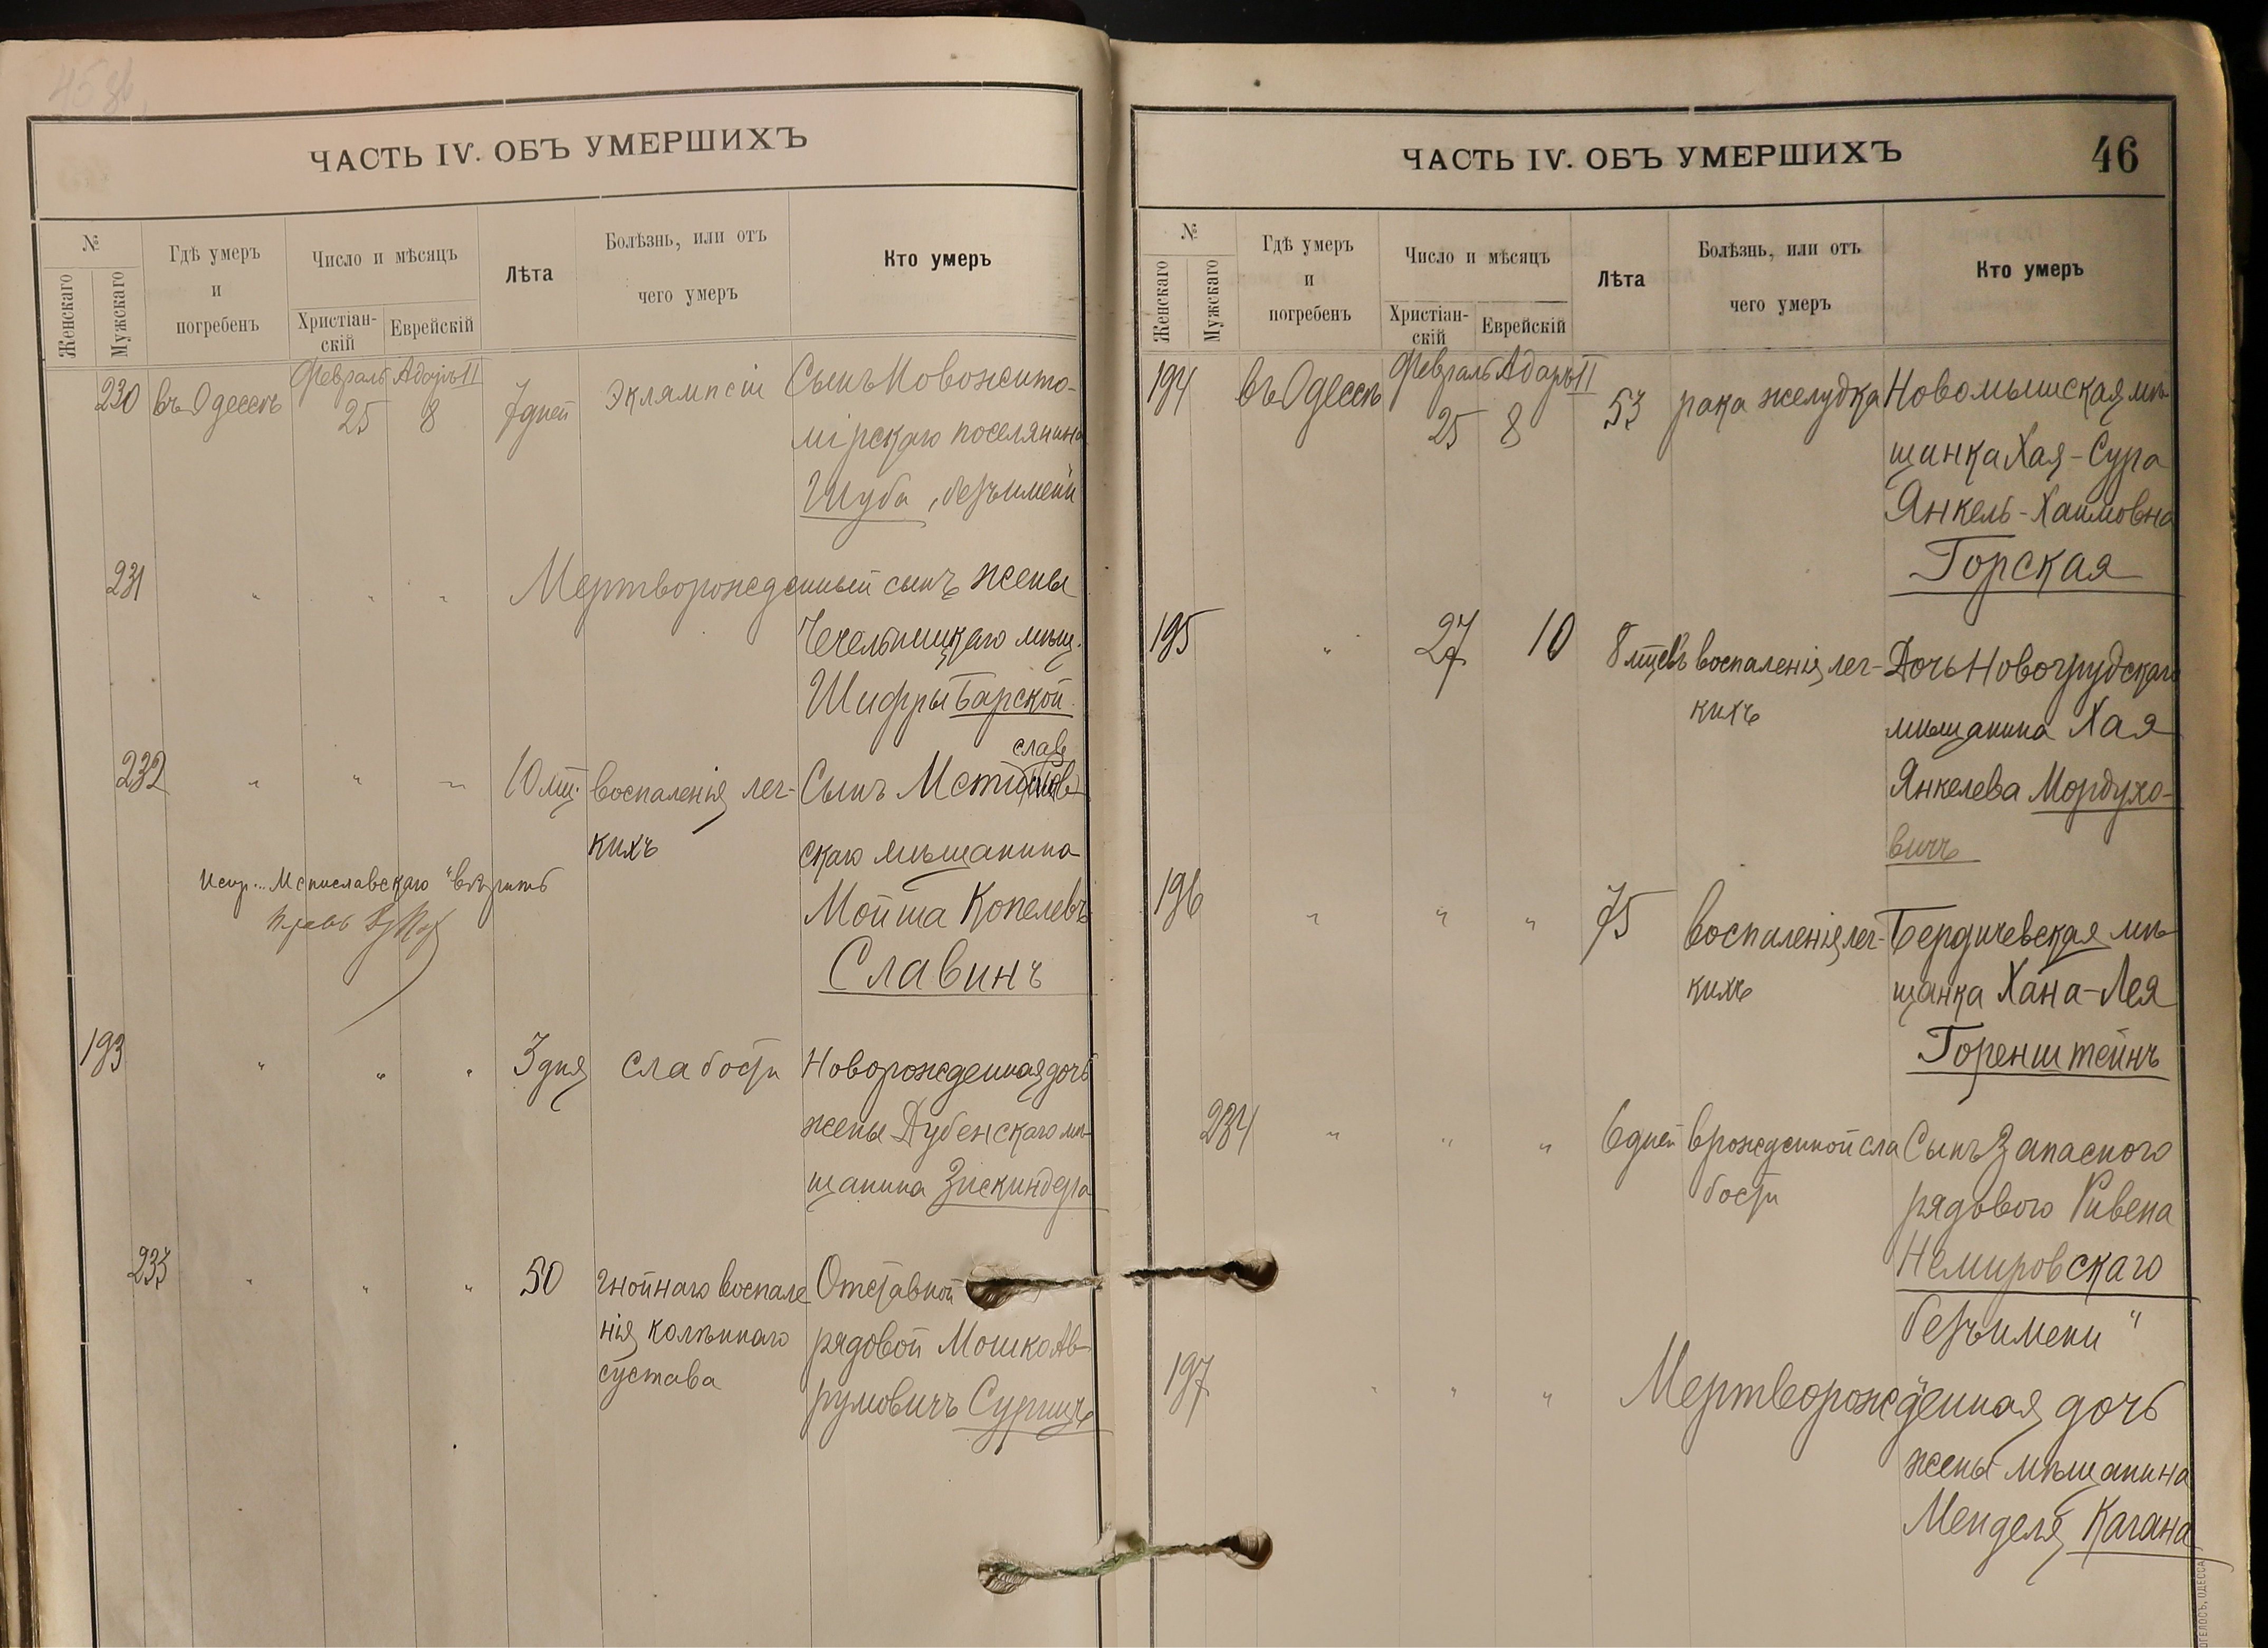 45 об.
ЧАСТЬ IV. ОБЪ УМЕРШИХЪ
№
Женскаго
Мужскаго
Гдѣ умеръ
и
погребенъ
Число и мѣсяцъ
Христіан-
скій
Еврейскій
Лѣта
Болѣзнь, или отъ
чего умеръ
Кто умеръ
230 въ Одессѣ Февраль 25 Адаръ II 8 7 дней Эклямпсіи Сынъ Новожито-
мірскаго поселянина
Шуба, безъ имени
231 " " " Мертворожденный сынъ жены
Чечельницкаго мѣщ.
Шифры Барской
232 " " " 10 мц. воспаленія лег- Сынъ Мстислав
кихъ скаго мѣщанина
Мойша Копелевъ
Славинъ
Испр... Мстиславскаго "вѣрить
193 " " " 3 дня слабости Новорожденная дочь
жены Дубенскаго мѣ-
щанина Зискиндера
233 " " " 50 гнойнаго воспале Отставной
нія колѣннаго рядовой Мошко Ав-
сустава румовичъ
ЧАСТЬ IV. ОБЪ УМЕРШИХЪ
46
№
Женскаго
Мужскаго
Гдѣ умеръ
и
погребенъ
Число и мѣсяцъ
Христіан-
скій
Еврейскій
Лѣта
Болѣзнь, или отъ
чего умеръ
Кто умеръ
194 въ Одессѣ Февраль 25 Адаръ II 8 53 рака желудка Новомышская мѣ-
щанка Хая-Сура
Янкель-Хаимовна
Горская
195 " 27 10 8 мцевъ воспаленія лег- Дочь Новогрудскаго
кихъ мѣщанина Хая
Янкелева Мордухо-
вичъ
196 " " " 75 воспаленія лег- Бердичевская мѣ-
кихъ щанка Хана-Лея
Горенштейнъ
234 " " " 6 дней врожденной сла Сынъ Запасного
бости рядового Рувена
Немировскаго
безъ имени "
197 " " " Мертворожденная дочь
жены мѣщанина
Менделя Кагана